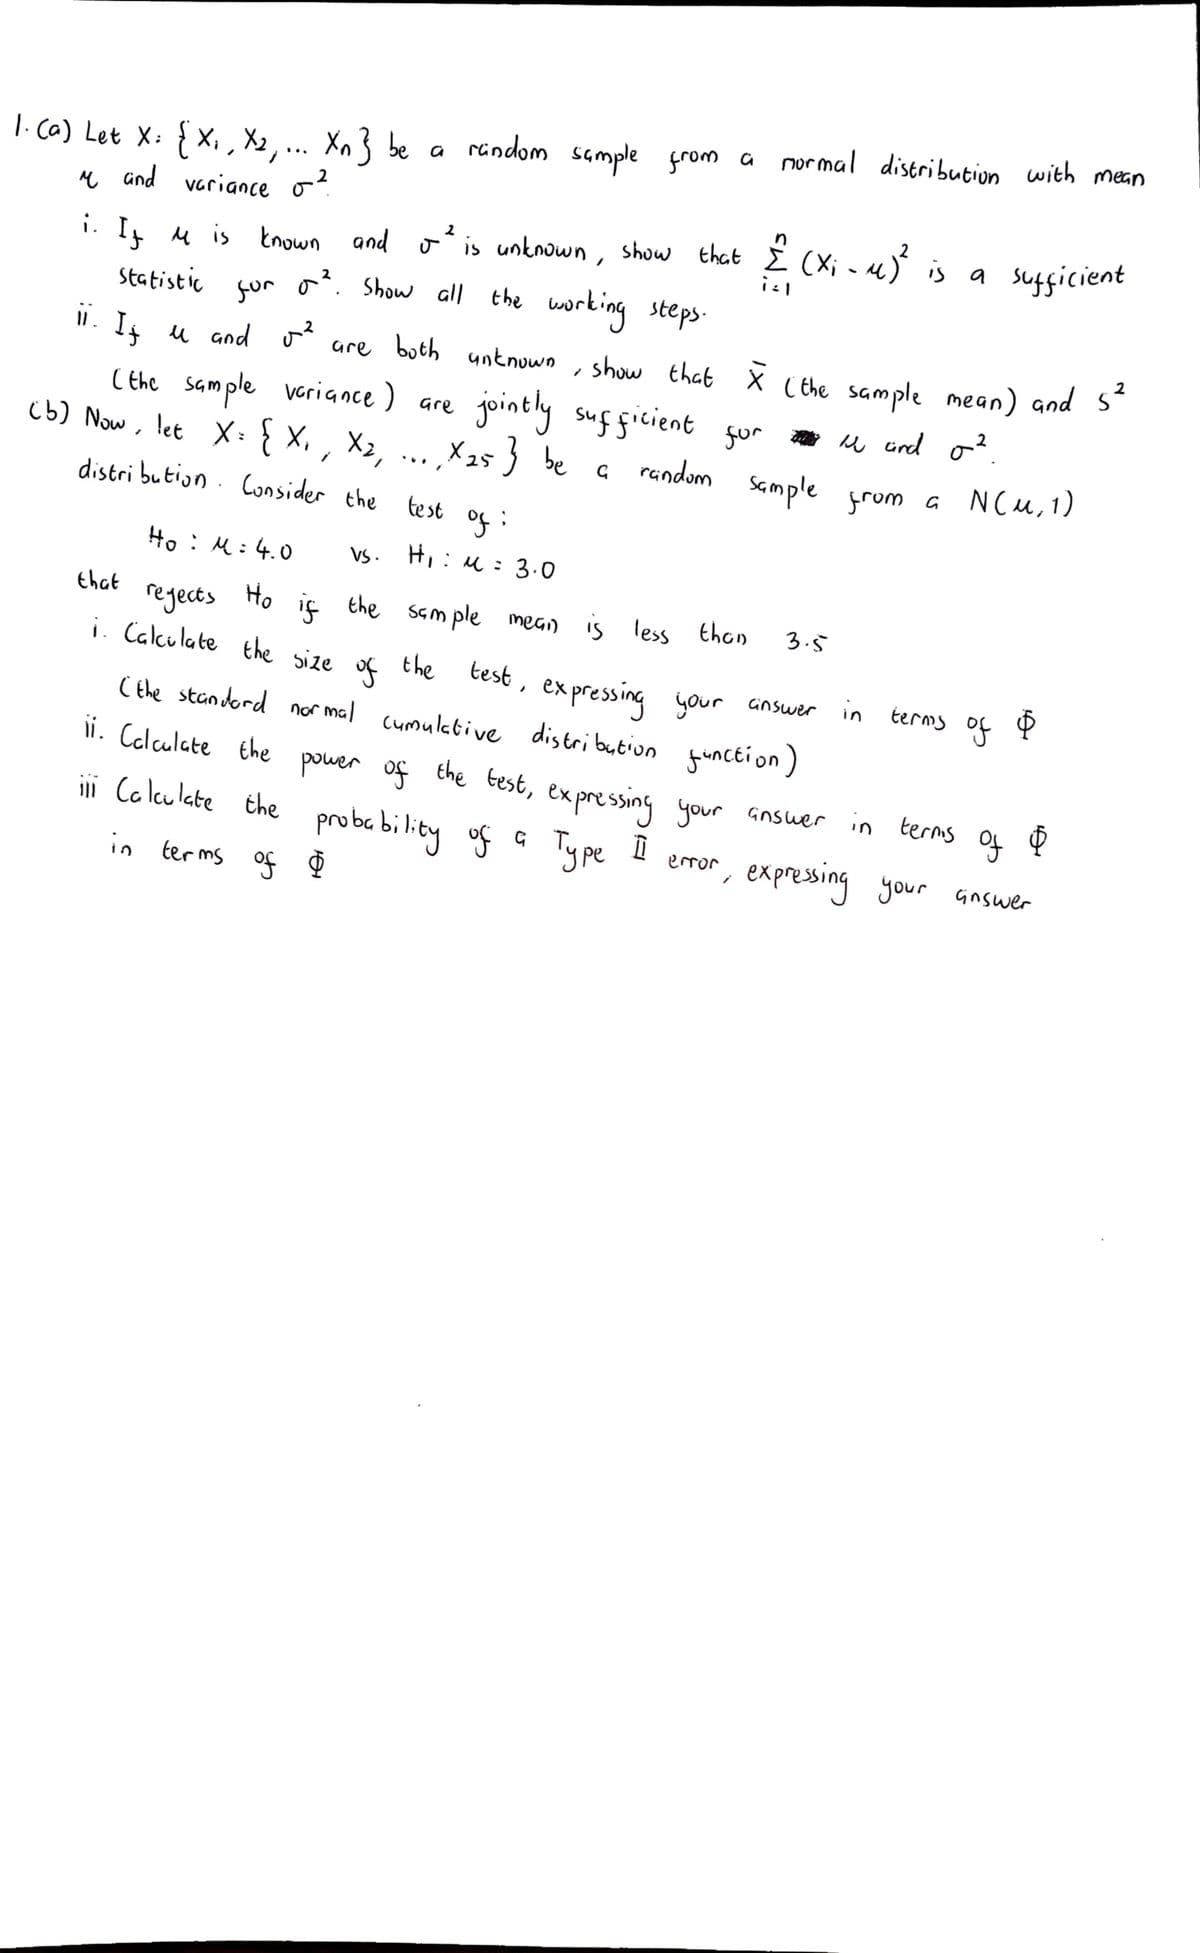 1. (a) Let X = {X₁, X₂, ... Xn} be a random sample from a normal distribution with mean
μ and variance σ².
i. If μ is known and σ² is unknown, show that Σᵢ₌₁ⁿ (Xi - μ)² is a sufficient
statistic for σ². Show all the working steps.
ii. If μ and σ² are both unknown, show that X̄ (the sample mean) and s²
(the sample variance) are jointly sufficient for μ and σ².
(b) Now, let X = {X₁, X₂, ..., X₂₅} be a random sample from a N(μ, 1)
distribution. Consider the test of:
H₀ : μ = 4.0 vs. H₁ : μ = 3.0
that rejects H₀ if the sample mean is less than 3.5
i. Calculate the size of the test, expressing your answer in terms of Φ
(the standard normal cumulative distribution function)
ii. Calculate the power of the test, expressing your answer in terms of Φ
iii Calculate the probability of a Type II error, expressing your answer
in terms of Φ